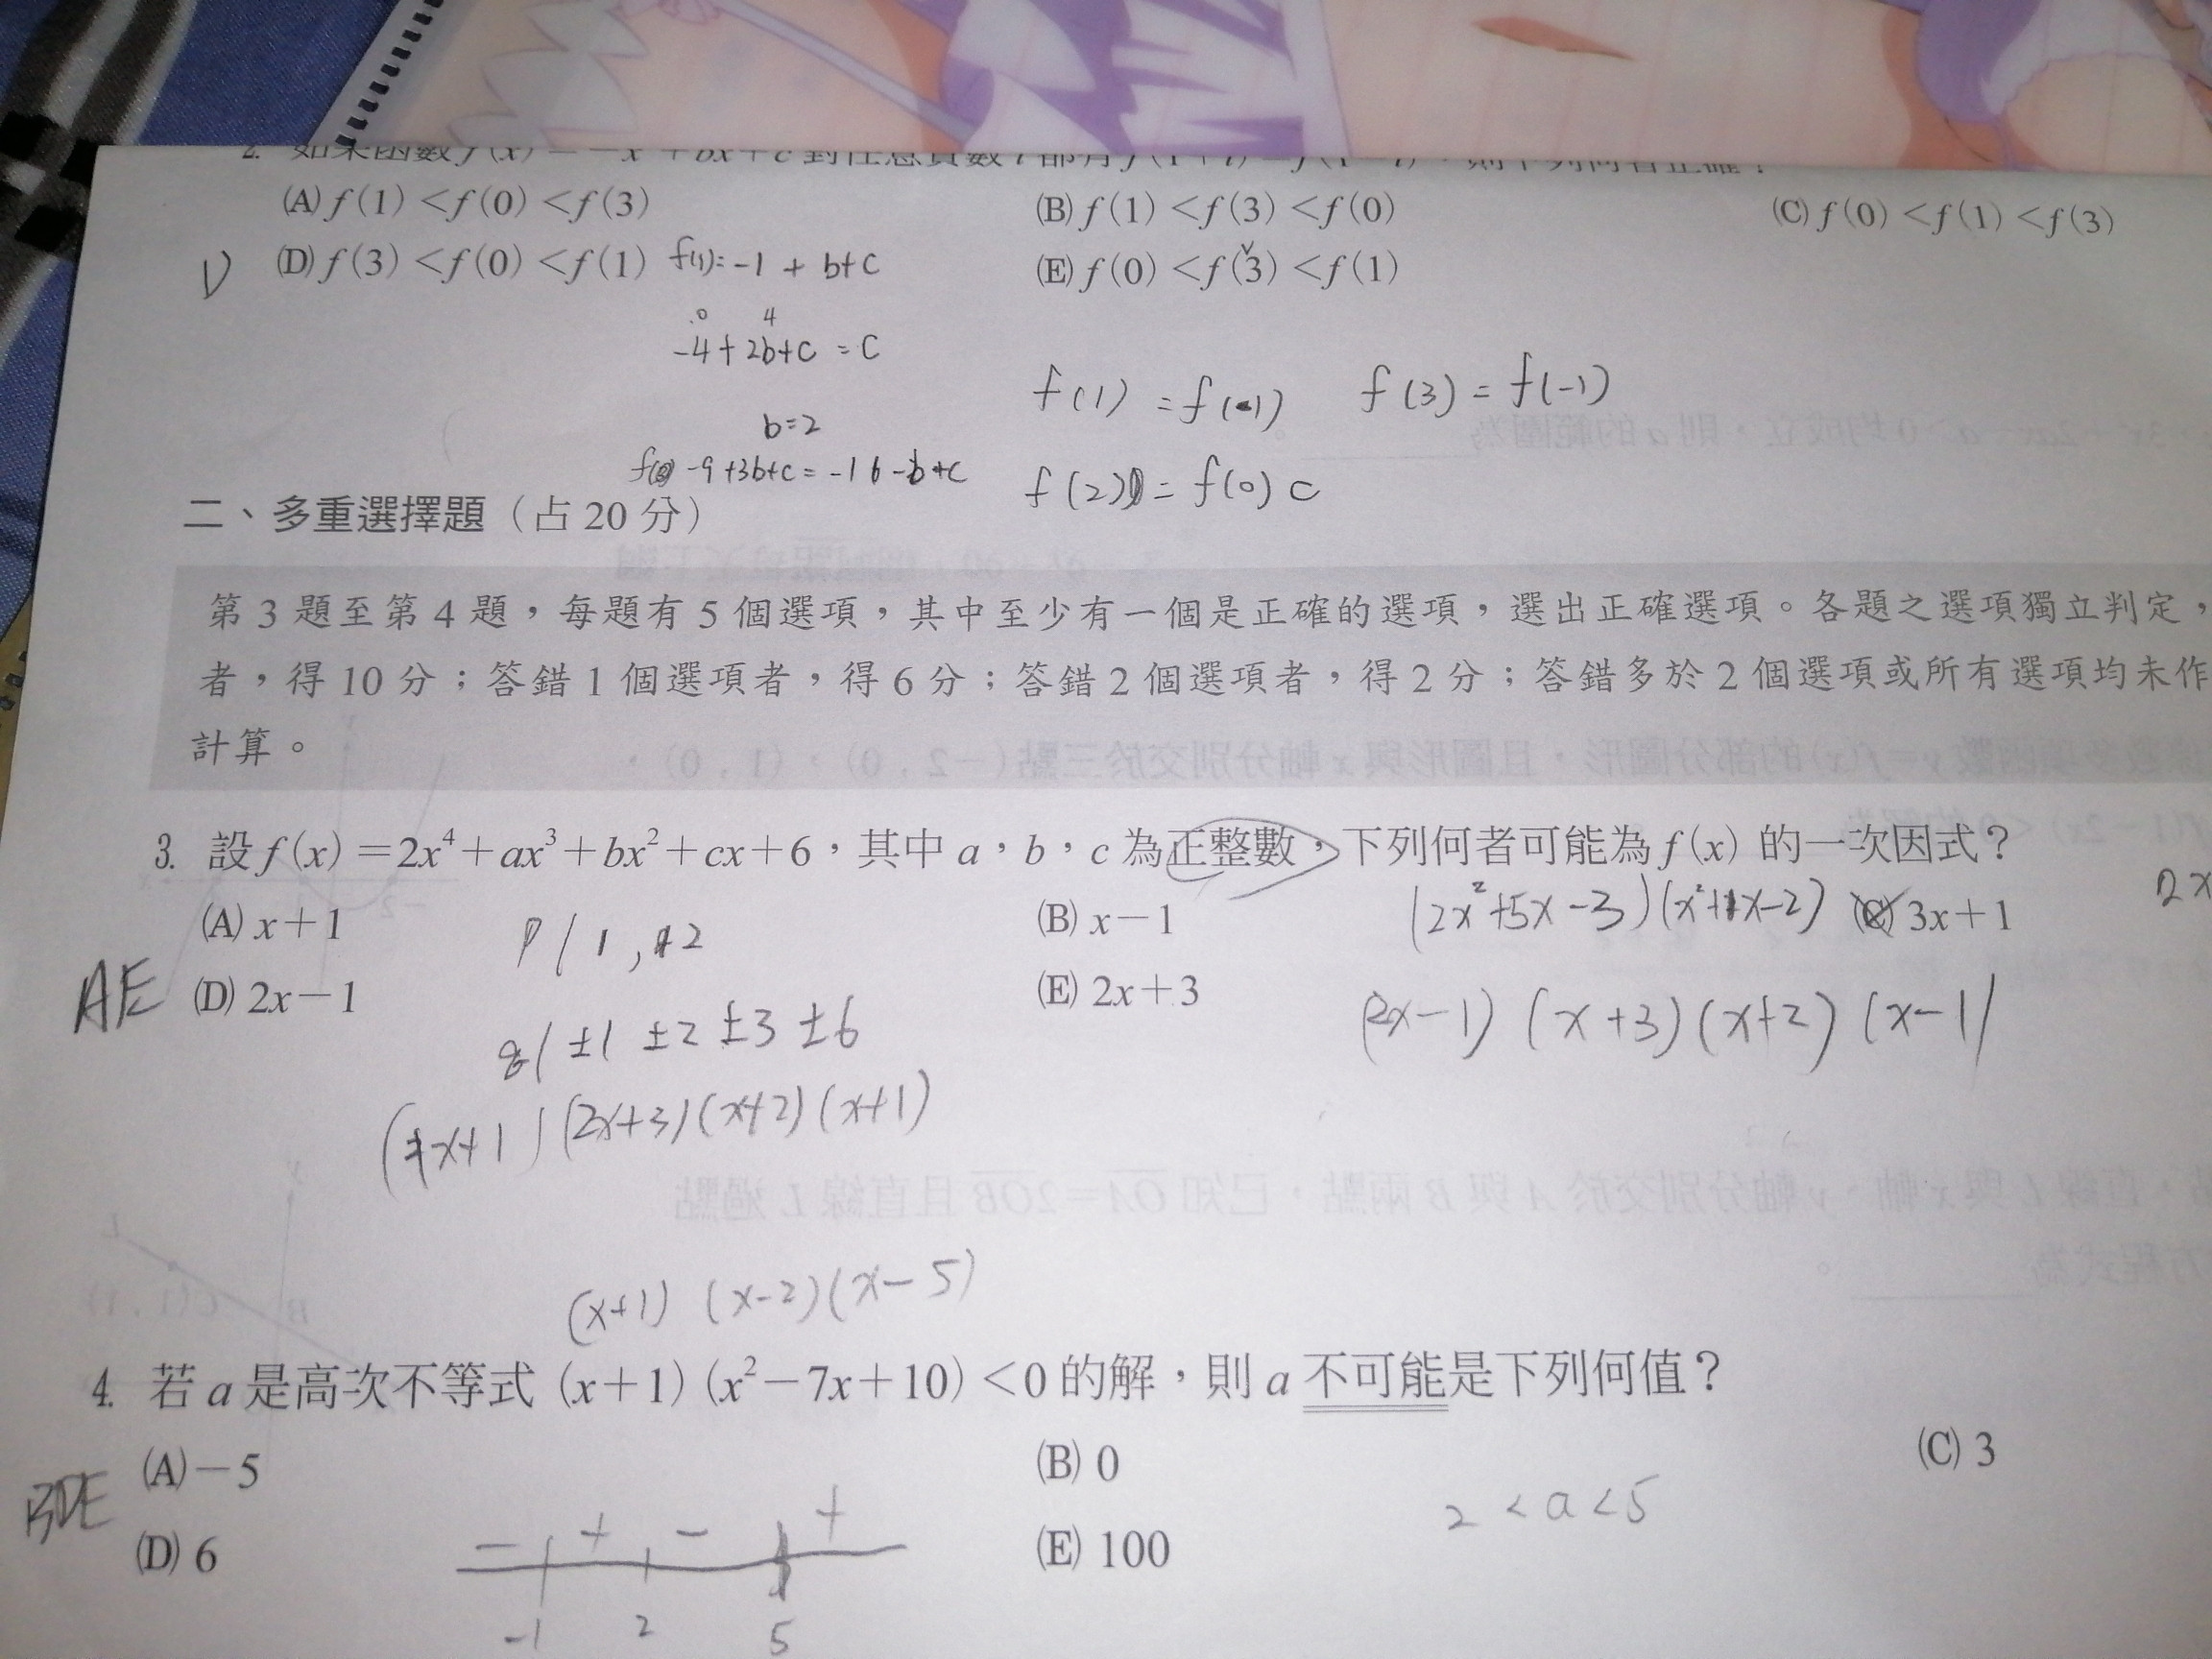 2. 如果函數 f(x)=−x²+bx+c 對任意實數 t 都有 f(1+t)=f(1−t),則下列何者正確?
(A) f(1)<f(0)<f(3) (B) f(1)<f(3)<f(0) (C) f(0)<f(1)<f(3)
D (D) f(3)<f(0)<f(1) f(1)=-1+b+c (E) f(0)<f(3)<f(1)
0 4
-4+2b+c=c
f(1)=f(-1) f(3)=f(-1)
b=2
-9+3b+c=-1 -b+c
f(2)=f(0) c
二、多重選擇題(占 20 分)
第 3 題至第 4 題,每題有 5 個選項,其中至少有一個是正確的選項,選出正確選項。各題之選項獨立判定,
者,得 10 分;答錯 1 個選項者,得 6 分;答錯 2 個選項者,得 2 分;答錯多於 2 個選項或所有選項均未作
計算。
3. 設 f(x)=2x⁴+ax³+bx²+cx+6,其中 a,b,c 為正整數,下列何者可能為 f(x) 的一次因式?
(2x²+5x-3)(x²+1x-2) 2x
(A) x+1 (B) x−1 (C) 3x+1
P/1,2
AE (D) 2x−1 (E) 2x+3
(2x-1)(x+3)(x+2)(x-1)
q/±1 ±2 ±3 ±6
(x+1)(2x+3)(x+2)(x+1)
(x+1)(x-2)(x-5)
4. 若 a 是高次不等式 (x+1)(x²−7x+10)<0 的解,則 a 不可能是下列何值?
(A) −5 (B) 0 (C) 3
BDE
2<a<5
(D) 6 (E) 100
− + − +
-1 2 5